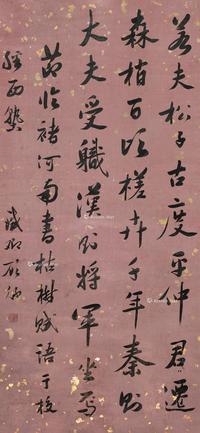 若夫松子古度平仲君遷
森梢百頃槎枿千年秦則
大夫受職漢則將軍坐焉
節臨褚河南書枯樹賦語于校
經西